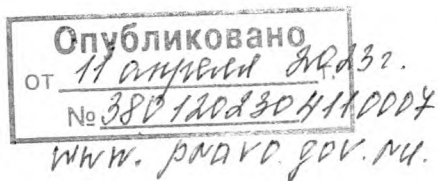 Опубликовано
от 11 апреля 2023г.
№ 3801202304110007
www. pravo. gov. ru.